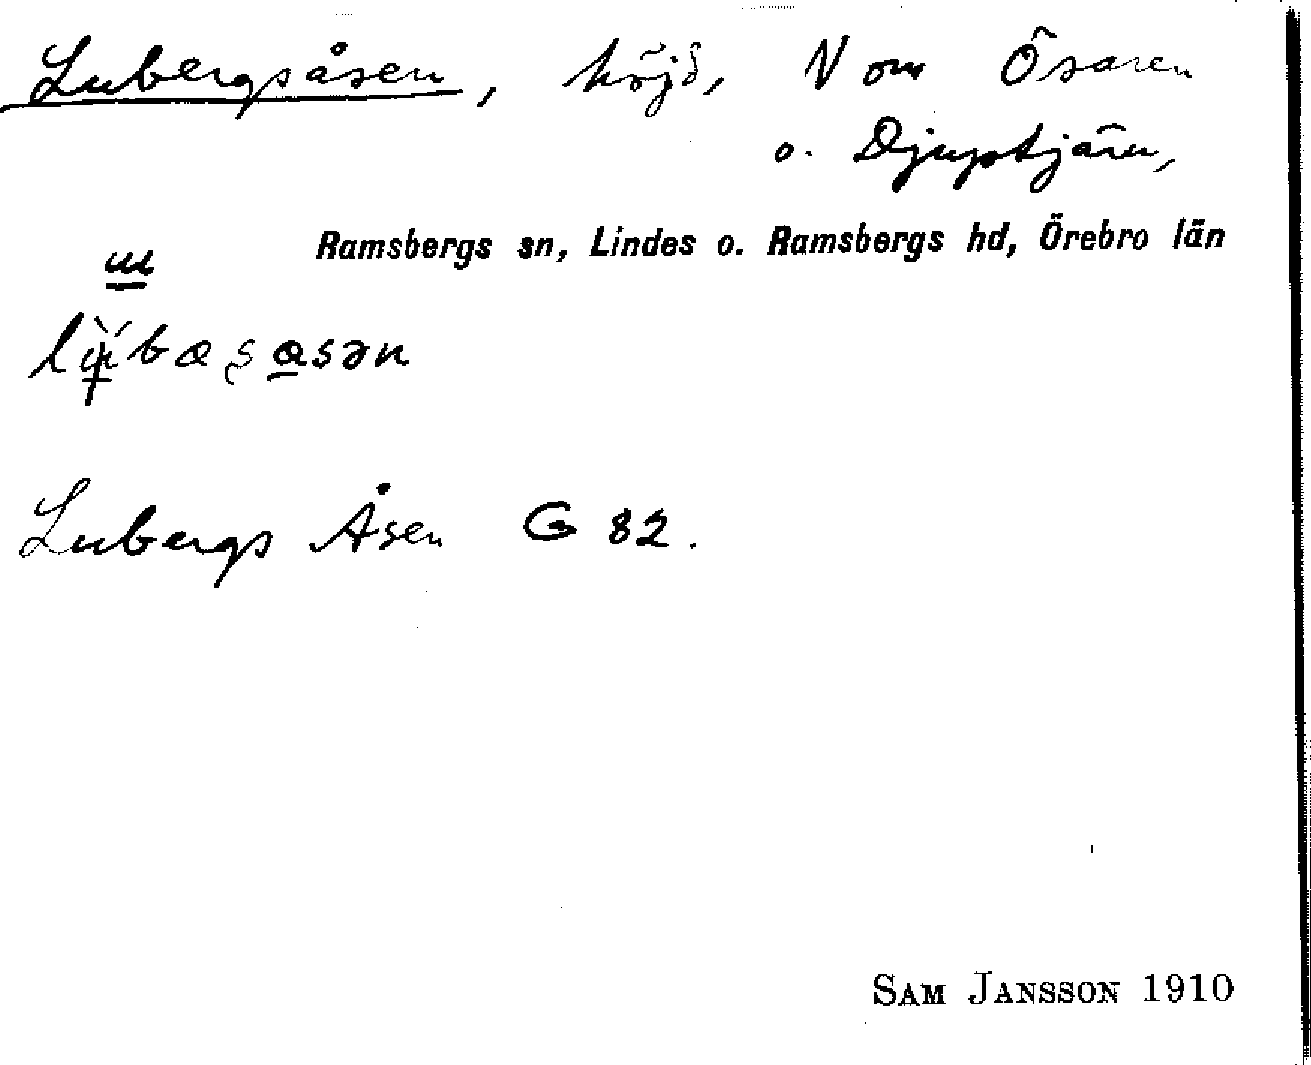 Lubergsåsen, höjd, N om Ösaren
o. Djuptjärn,
Ramsbergs sn, Lindes o. Ramsbergs hd, Örebro län
Lubergs Åsen G 82.
SAM JANSSON 1910